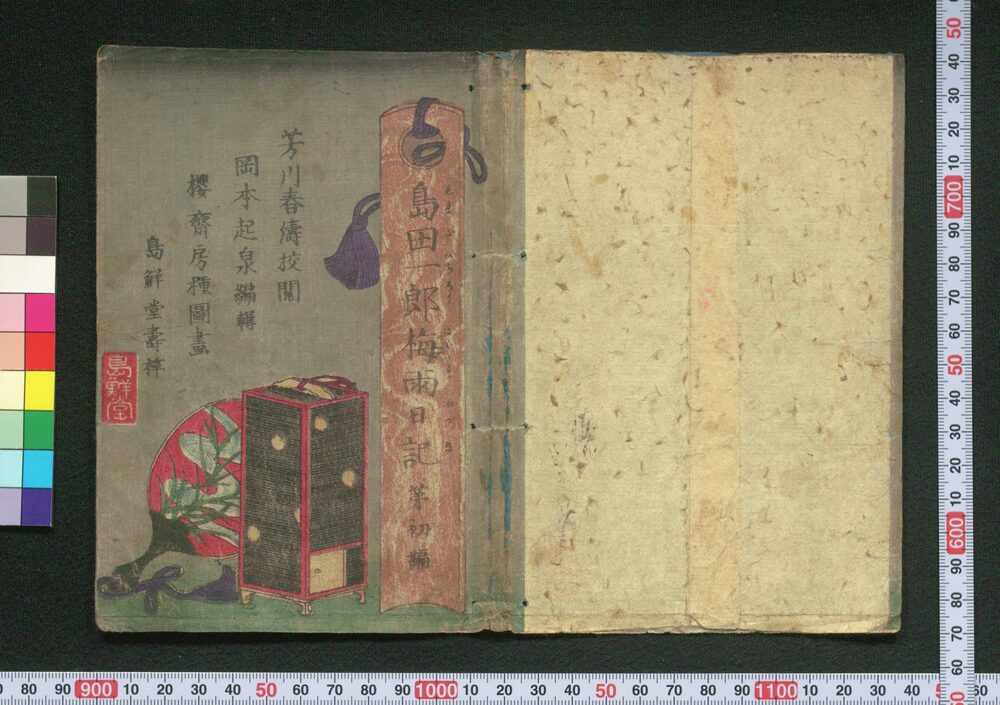 島田一郎梅雨日記 第初編
芳川春濤挍閲
岡本起泉編輯
櫻齋房種圖畫
島鮮堂壽梓
島鮮堂
80 90 900 10 20 30 40 50 60 70 80 90 1000 10 20 30 40 50 60 70 80 90 1100 10 20 30 40 60
50 40 30 20 10 700 90 80 70 60 50 40 30 20 10 600 90 80 70 60 50